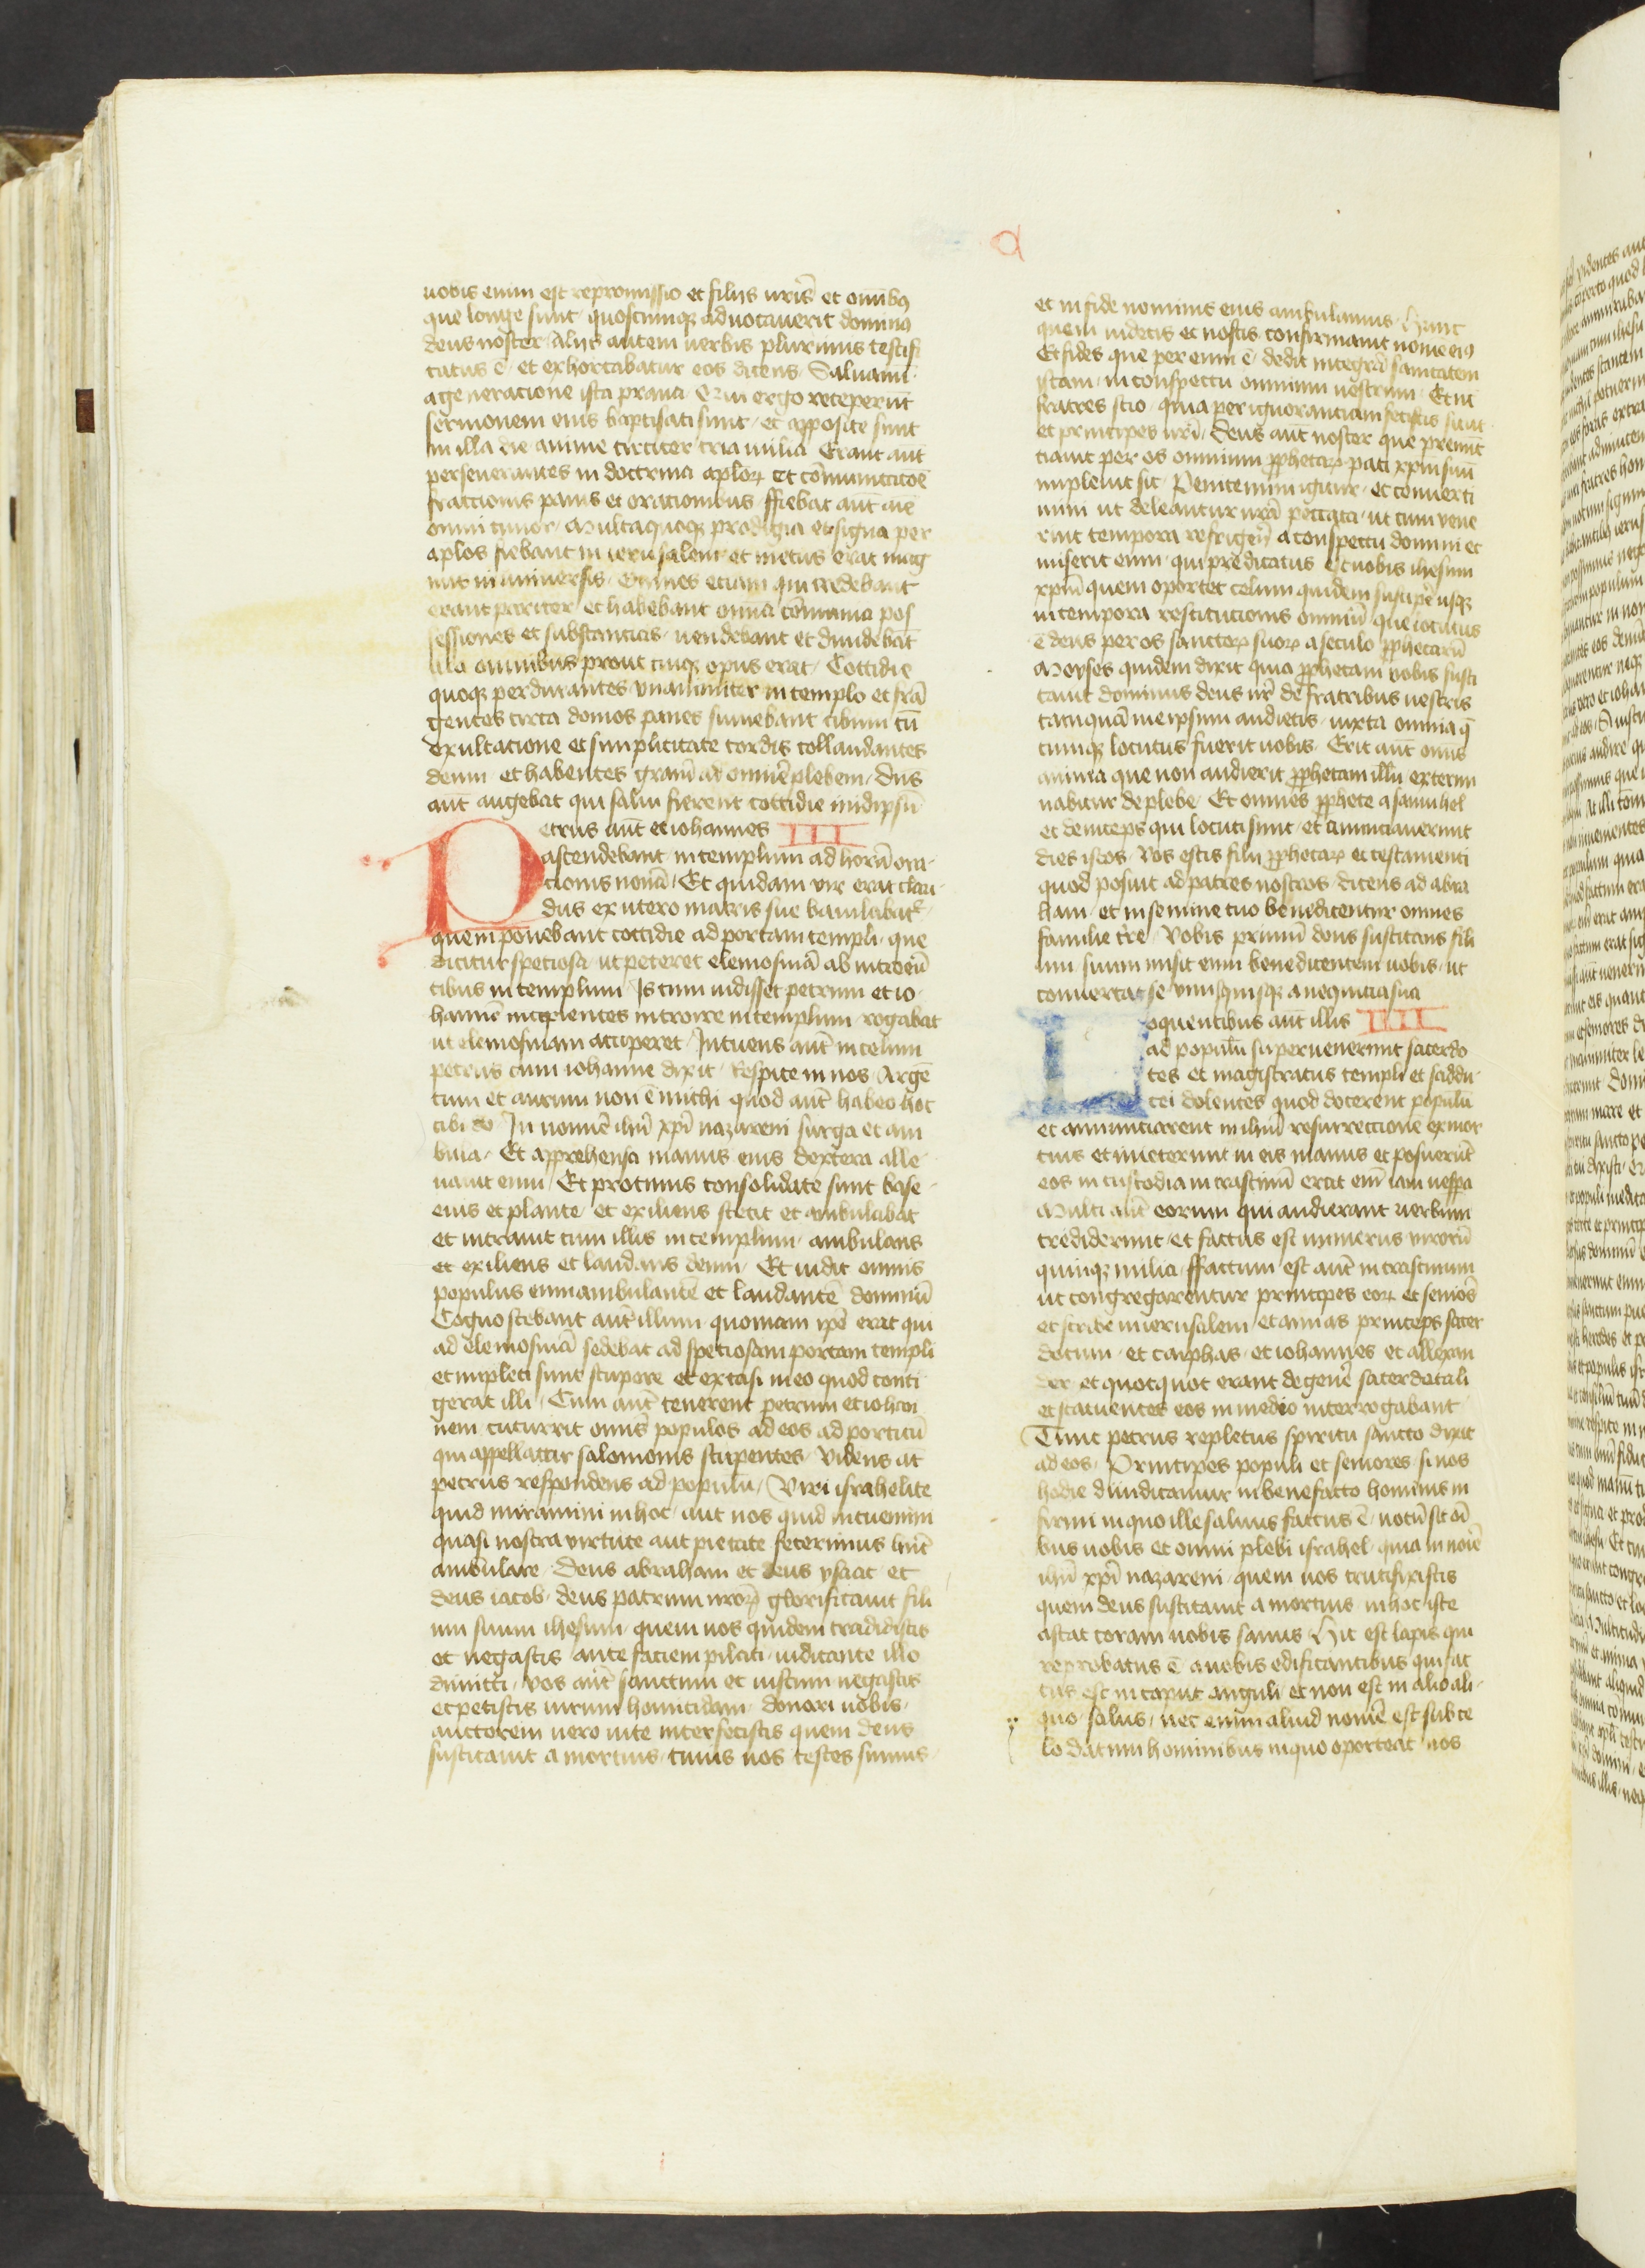 a
uobis enim est repromissio et filijs urīs et omībꝯ
que longe sunt quoscumqꝫ aduocauerit dominꝯ
deus noster Alijs autem uerbis plurimis testifi
catus ē et exhortabatur eos dicens Saluamī
a generacione ista praua Qui ergo receperūt
sermonem eius baptisati sunt et apposite sunt
in illa die anime circiter tria milia Erant aūt
perseuerantes in doctrina aplorꝫ et cōmunicacōe
fractionis panis et orationibus ffiebat aūt aīe
omni timor Multaquoqꝫ prodigia et signa per
aplos fiebant in ierusalem et metus erat mag
nus in uniuersis Omnes etiam qui credebant
erant pariter et habebant omīa cōmunia pos
sessiones et substancias uendebant et diuidebāt
illa omnibus prout cuiqꝫ opus erat Cottidie
quoqꝫ perdurantes vnanimiter in templo et frā
gentes circa domos panes sumebant cibum cū
exultacione et simplicitate cordis collaudantes
deum et habentes graciā ad omnē plebem Dn̄s
aūt augebat qui salui fierent cottidie in idipsū
Petrus aūt et iohannes III
ascendebant in templum ad horā ora
cionis nonā Et quidam vir erat clau
dus ex utero matris sue baiulabatᵉ
quem ponebant cottidie ad portam templi que
dicitur speciosa ut peteret elemosinā ab introeū
tibus in templum Is cum uidisset petrum et io
hannē incipientes introire in templum rogabat
ut elemosinam acciperet Intuens aūt in celum
petrus cum iohanne dixit Respice in nos Argē
tum et aurum non ē michi quod aūt habeo hoc
tibi do In nomīe ihū xp̄i nazareni surge et am
bula Et apprehensa manus eius dextera alle
uauit eum Et protinus consolidate sunt base
eius et plante et exiliens stetit et ambulabat
et intrauit cum illis in templum ambulans
et exiliens et laudans deum Et uidit omnis
populus eum ambulantē et laudantē dominū
Cognoscebant aūt illum quoniam ip̄e erat qui
ad elemosinā sedebat ad speciosam portam templi
et impleti sunt stupore et extasi in eo quod conti
gerat illi Cum aūt tenerent petrum et iohan
nem cucurrit omīs populos ad eos ad porticū
qui appellatur salomonis stupentes Videns aūt
petrus respondens ad populū Viri israhelite
quid miramini in hoc aut nos quid intuemini
quasi nostra virtute aut pietate fecerimus hūc
ambulare Deus abraham et deus ysaac et
deus iacob deus patrum nr̄orꝫ glorificauit fili
um suum ihesum quem uos quidem tradidistis
et negastis ante faciem pilati iudicante illo
dimitti Vos aūt sanctum et iustum negastis
et petistis uirum homicidam donari uobis
auctorem uero uite interfecistis quem deus
suscitauit a mortuis cuius nos testes sumus
et in fide nominis eius ambulamus Hunc
quem uidetis et nostis confirmauit nome eiꝯ
Et fides que per eum ē dedit integrā sanitatem
istam in conspectu omnium uestrum Et nc̄
fratres scio quia per ignorantiam fecistis sicut
et principes ur̄i Deus aūt noster que prenūc
ciauit per os omnium p̄phetarꝫ pati xp̄m suū
impleuit sic Penitemini igitur et conuerti
mini ut deleantur ur̄a peccata ut cum vene
rint tempora refrigerij a conspectu domini et
miserit eum qui predicatus est uobis ihesum
xp̄m quem oportet celum quidem suscipe usqꝫ
in tempora restitucionis omniū que locutus
ē deus per os sanctorꝫ suorꝫ a seculo p̄phetarū
Moyses quidem dixit quia p̄phetam uobis susci
tauit dominus deus ur̄ de fratribus uestris
tanquā me ipsum audietis iuxta omnia q̄
cumqꝫ locutus fuerit uobis Erit aūt omīs
anima que non audierit p̄phetam illū extermi
nabitur de plebe Et omnes p̄phete a samuhel
et deinceps qui locuti sunt et annunciauerunt
dies istos Vos estis filij p̄phetarꝫ et testamenti
quod posuit ad patres nostros dicens ad abra
ham et in semine tuo benedicentur omnes
familie tr̄e Vobis primū deus suscitans fili
um suum misit eum benedicentem uobis ut
conuertat se vnusquisqꝫ a nequicia sua
Loquentibus aūt illis IIII
ad populū superuenerunt sacerdo
tes et magistratus templi et saddu
cei dolentes quod docerent populū
et annunciarent in ihū resurrectionē ex mor
tuis et iniecerunt in eis manus et posuerūt
eos in custodia in crastinū erat enī iam uesp̄a
Multi aūt eorum qui audierant uerbum
crediderunt et factus est numerus virorū
quinqꝫ milia ffactum est aūt in crastinum
ut congregarentur principes eorꝫ et seniores
et scribe in ierusalem et annas princeps sacer
dotum et cayphas et iohannes et allexan
der et quotquot erant de genē sacerdotali
et statuentes eos in medio interrogabant
Tunc petrus repletus spiritu sancto dixit
ad eos Principes populi et seniores si nos
hodie diiudicamur in benefacto hominis in
firmi in quo ille saluus factus ē notū sit oī
bus uobis et omni plebi israhel quia in noīe
ihū xp̄i nazareni quem uos crucifixistis
quem deus suscitauit a mortuis in hoc iste
astat coram uobis sanus Hic est lapis qui
reprobatus ē a uobis edificantibus qui fac
tus est in caput anguli et non est in alio ali
quo salus nec enim aliud nomē est sub ce
lo datum hominibus in quo oporteat nos